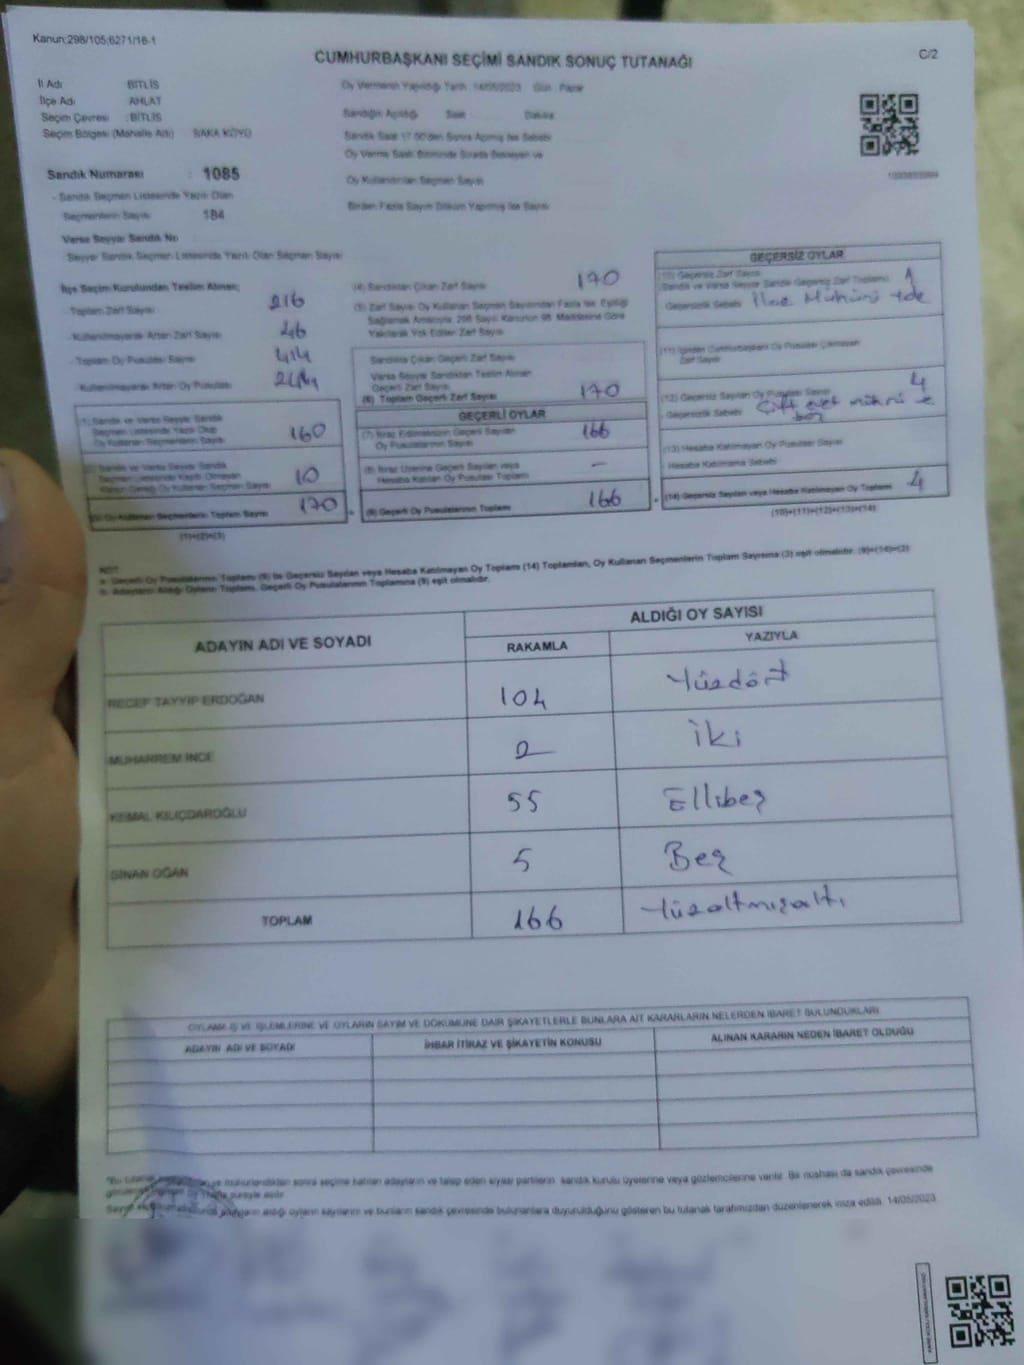 Kanun:298/105;6271/16-1
C/2
CUMHURBAŞKANI SEÇİMİ SANDIK SONUÇ TUTANAĞI
İl Adı BİTLİS
İlçe Adı AHLAT
Seçim Çevresi : BİTLİS
Seçim Bölgesi (Mahalle Adı) SAKA KÖYÜ
Sandık Numarası : 1085
- Sandık Seçmen Listesinde Yazılı Olan
Seçmenlerin Sayısı 184
Varsa Seyyar Sandık No
- Seyyar Sandık Seçmen Listesinde Yazılı Olan Seçmen Sayısı
Oy Vermenin Yapıldığı Tarih : 14/05/2023 Gün : Pazar
Sandığın Açıldığı Saat Dakika
Sandık Saat 17.00'den Sonra Açılmış İse Sebebi
Oy Verme Saati Bitiminde Sırada Bekleyen ve
Oy Kullandırılan Seçmen Sayısı
Birden Fazla Sayım Döküm Yapılmış İse Sayısı
İlçe Seçim Kurulundan Teslim Alınan;
- Toplam Zarf Sayısı 216
- Kullanılmayarak Artan Zarf Sayısı 46
- Toplam Oy Pusulası Sayısı 414
- Kullanılmayarak Artan Oy Pusulası
(1) Sandık ve Varsa Seyyar Sandık
Seçmen Listesinde Yazılı Olup
Oy Kullanan Seçmenlerin Sayısı 160
(2) Sandık ve Varsa Seyyar Sandık
Seçmen Listesinde Kayıtlı Olmayan
Kanun Gereği Oy Kullanan Seçmen Sayısı 10
(3) Oy Kullanan Seçmenlerin Toplam Sayısı 170
(1)+(2)=(3)
(4) Sandıktan Çıkan Zarf Sayısı 170
(5) Zarf Sayısı Oy Kullanan Seçmen Sayısından Fazla İse, Eşitliği
Sağlamak Amacıyla 298 Sayılı Kanunun 98. Maddesine Göre
Yakılarak Yok Edilen Zarf Sayısı
Sandıkta Çıkan Geçerli Zarf Sayısı
Varsa Seyyar Sandıktan Teslim Alınan
Geçerli Zarf Sayısı
(6) Toplam Geçerli Zarf Sayısı 170
GEÇERLİ OYLAR
(7) İtiraz Edilmeksizin Geçerli Sayılan
Oy Pusulalarının Sayısı 166
(8) İtiraz Üzerine Geçerli Sayılan veya
Hesaba Katılan Oy Pusulası Toplamı –
(9) Geçerli Oy Pusulalarının Toplamı 166
GEÇERSİZ OYLAR
(10) Geçersiz Zarf Sayısı
(Sandık ve Varsa Seyyar Sandık Geçersiz Zarf Toplamı) 1
Geçersizlik Sebebi
(11) İçinden Cumhurbaşkanı Oy Pusulası Çıkmayan
Zarf Sayısı
(12) Geçersiz Sayılan Oy Pusulası Sayısı 4
Geçersizlik Sebebi Çift evet mührü ve
boş
(13) Hesaba Katılmayan Oy Pusulası Sayısı
Hesaba Katılmama Sebebi
(14) Geçersiz Sayılan veya Hesaba Katılmayan Oy Toplamı 4
(10)+(11)+(12)+(13)=(14)
NOT:
a- Geçerli Oy Pusulalarının Toplamı (9) ile Geçersiz Sayılan veya Hesaba Katılmayan Oy Toplamı (14) Toplamları, Oy Kullanan Seçmenlerin Toplam Sayısına (3) eşit olmalıdır. (9)+(14)=(3)
b- Adayların Aldığı Oyların Toplamı, Geçerli Oy Pusulalarının Toplamına (9) eşit olmalıdır.
ADAYIN ADI VE SOYADI
ALDIĞI OY SAYISI
RAKAMLA YAZIYLA
RECEP TAYYİP ERDOĞAN 104 Yüzdört
MUHARREM İNCE 2 İki
KEMAL KILIÇDAROĞLU 55 Ellibeş
SİNAN OĞAN 5 Beş
TOPLAM 166 Yüzaltmışaltı
OYLAMA İŞ VE İŞLEMLERİNE VE OYLARIN SAYIM VE DÖKÜMÜNE DAİR ŞİKAYETLERLE BUNLARA AİT KARARLARIN NELERDEN İBARET BULUNDUKLARI
ADAYIN ADI VE SOYADI İHBAR İTİRAZ VE ŞİKAYETİN KONUSU ALINAN KARARIN NEDEN İBARET OLDUĞU
ve mühürlendikten sonra seçime katılan adayların ve talep eden siyasi partilerin sandık kurulu üyelerine veya gözlemcilerine verilir. Bir nüshası da sandık çevresinde
adayların aldığı oyların sayılarını ve bunların sandık çevresinde bulunanlara duyurulduğunu gösteren bu tutanak tarafımızdan düzenlenerek imza edildi. 14/05/2023